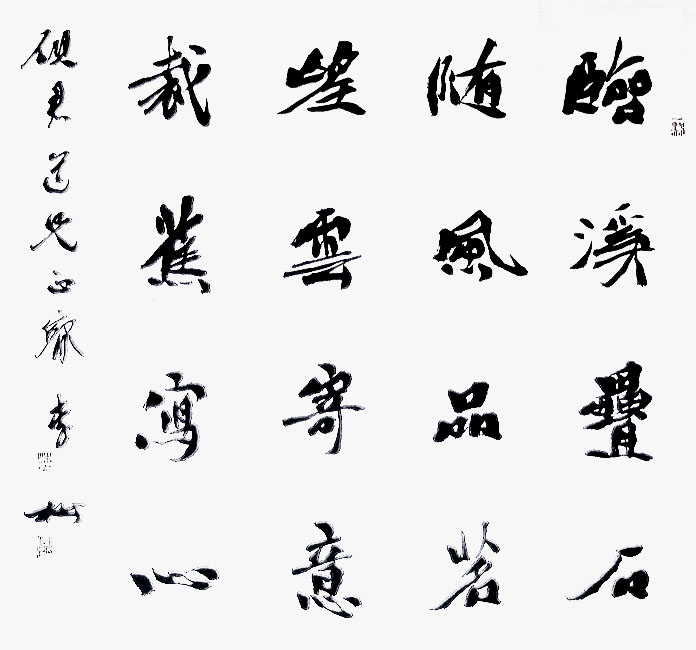 臨溪疊石
随風品茗
望雲寄意
裁蕉寫心
硯君道兄正 李